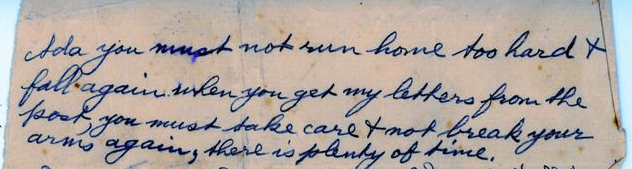 Ada you must not run home too hard &
fall again when you get my letters from the
post, you must take care & not break your
arms again, there is plenty of time.